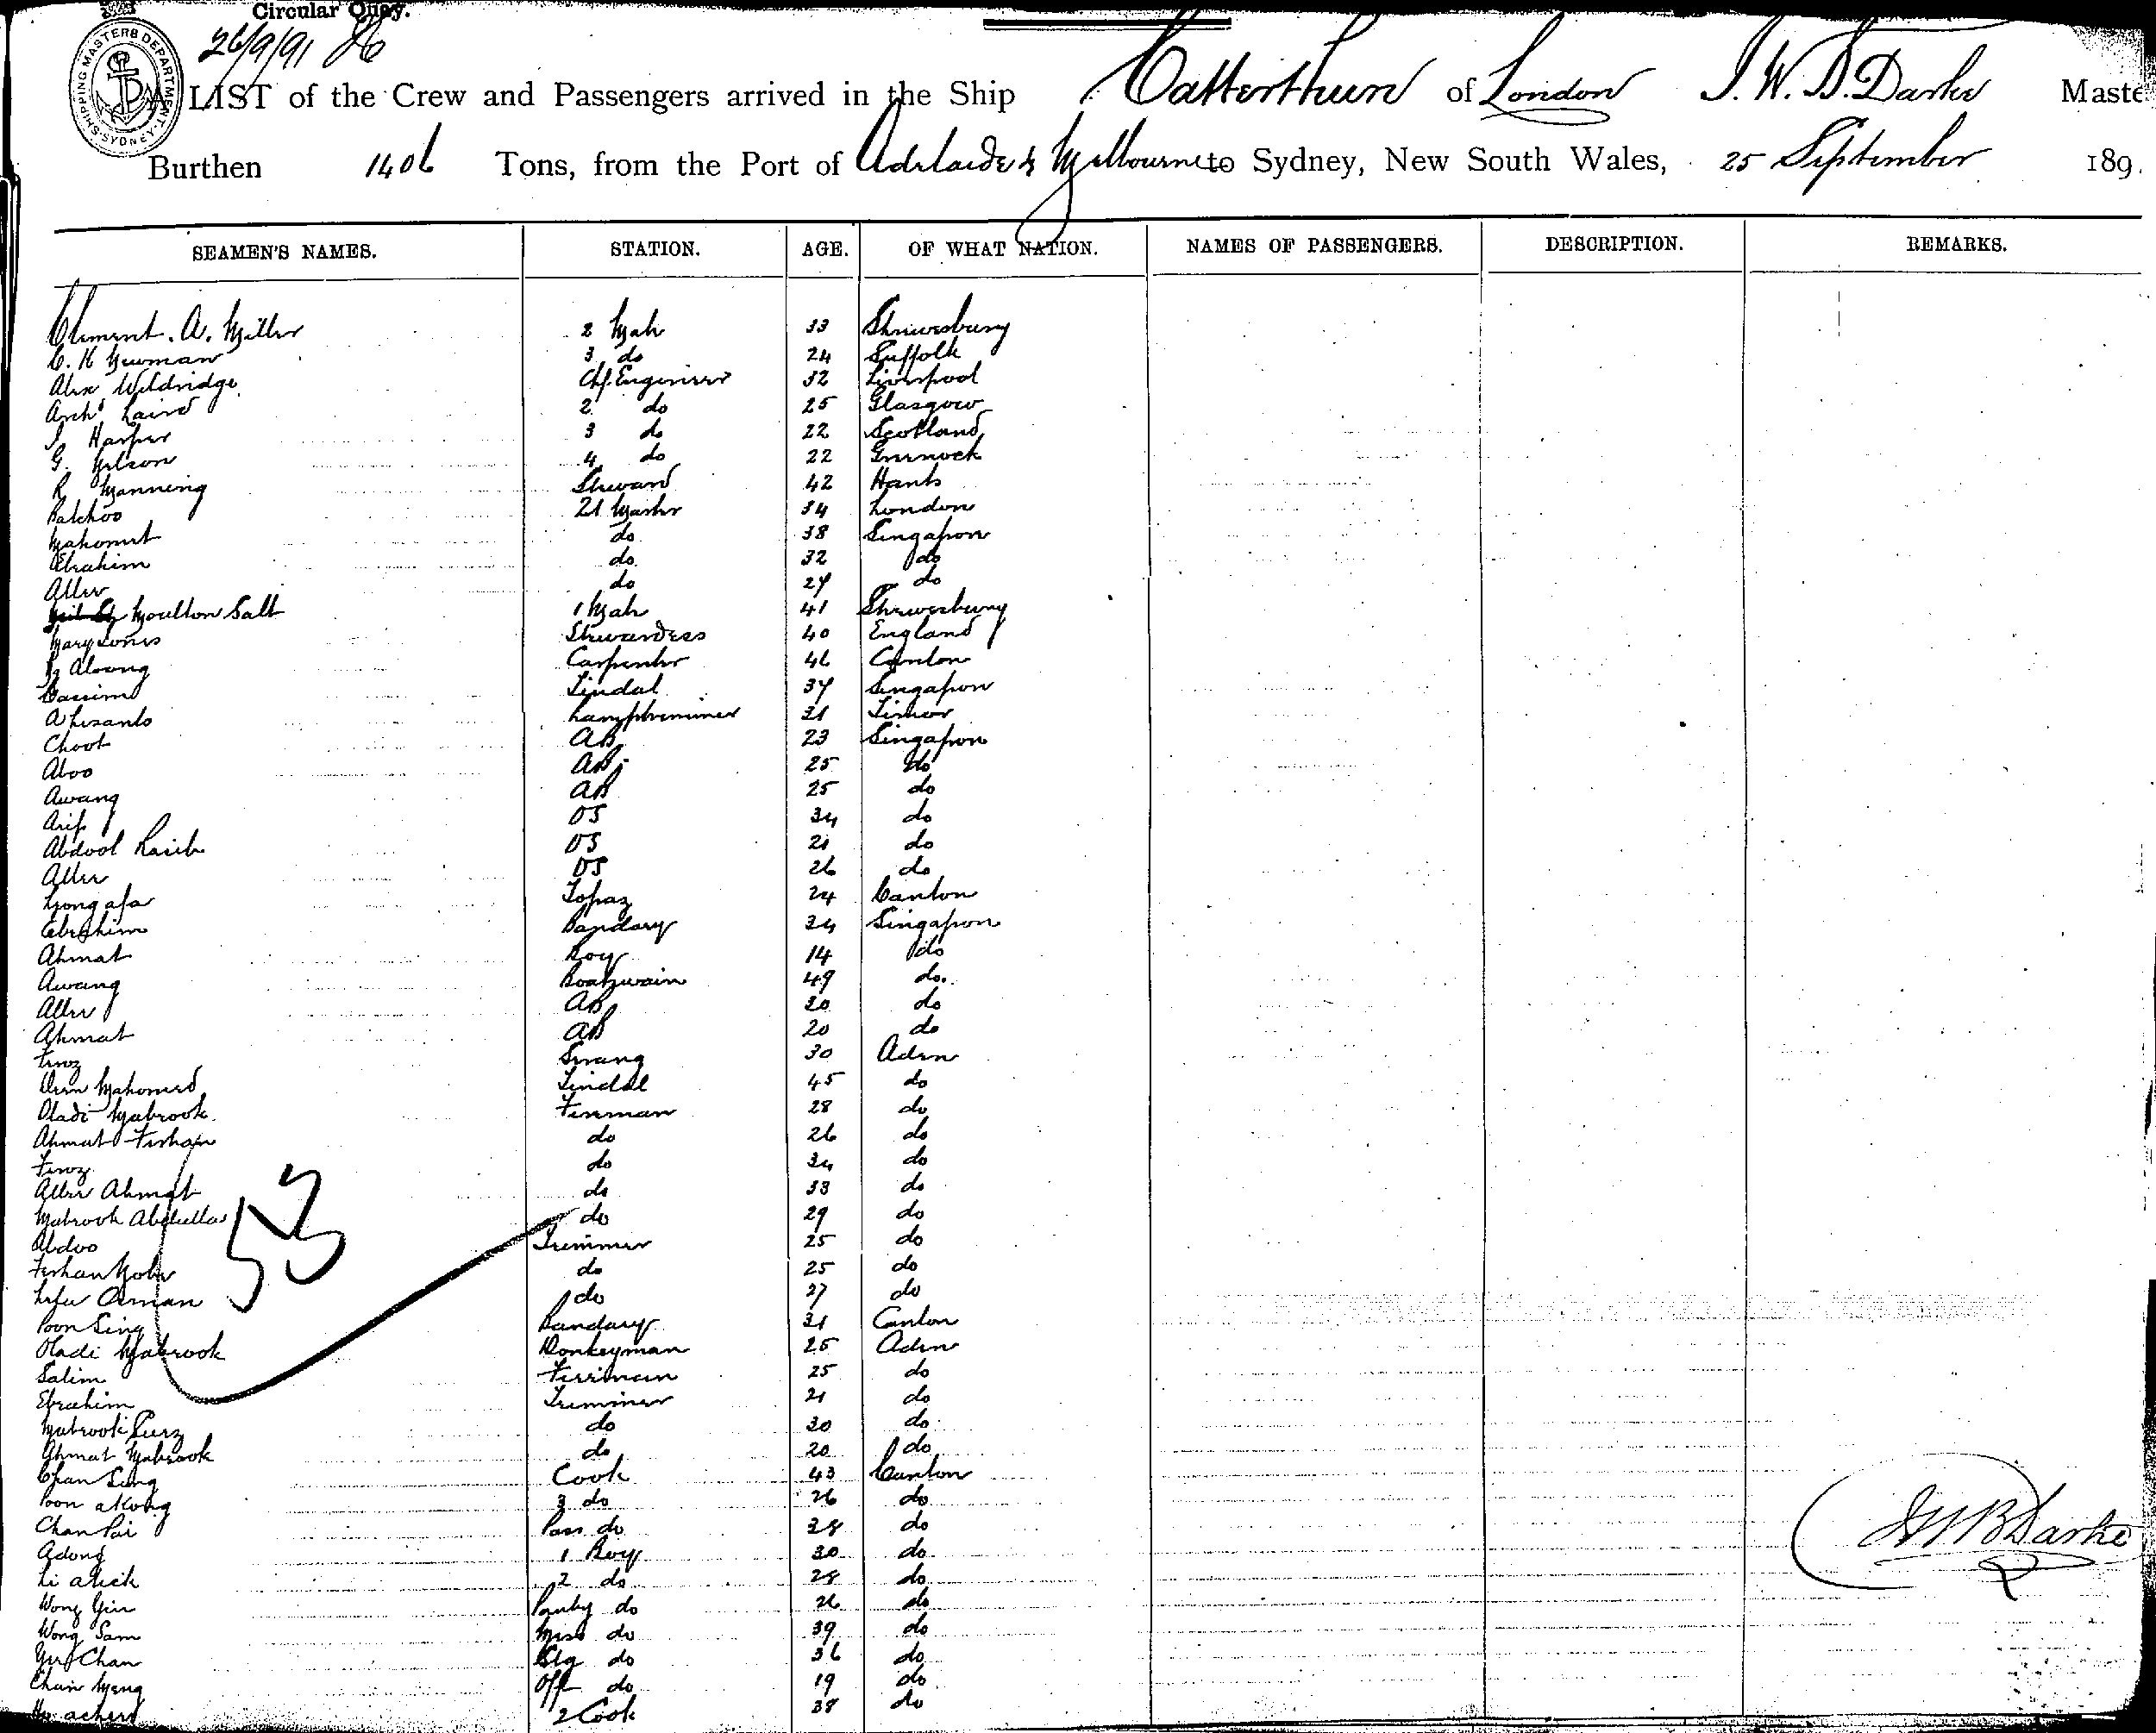 Circular Quay.
26/9/91
SHIPPING MASTERS DEPARTMENT SYDNEY
A LIST of the Crew and Passengers arrived in the Ship Catterthun of London J. W. B. Darke Maste
Burthen 1406 Tons, from the Port of Adelaide & Melbourne to Sydney, New South Wales, 25 September 189
SEAMEN'S NAMES. STATION. AGE. OF WHAT NATION. NAMES OF PASSENGERS. DESCRIPTION. REMARKS.
Clement. A. Miller 2 Mate 33 Shrewsbury
C. H Newman 3 do 24 Suffolk
Alex Weldridge Chf. Engineer 32 Liverpool
Archd Laird 2 do 25 Glasgow
J. Harper 3 do 22 Scotland
G. Nelson 4 do 22 Greenock
R Manning Steward 42 Hants
34 London
Mahomet do 38 Singapore
Ebrahim do 32 do
Allee do do
Moulton Salt 1 Mate 41 Shrewsbury
Mary Jones Stewardess 40 England
Carpenter 46 Canton
Cassim Tindal 37 Singapore
Lamptrimmer
Choot AB 23 Singapore
Aboo AB 25 do
Awang AB 25 do
Arif OS 34 do
Abdool OS 21 do
Allee OS 26 do
Topaz 24 Canton
Ebrahim Bandary 34 Singapore
Ahmat Boy 14 do
Awang Boatswain 49 do.
Allee AB 20 do
Ahmat AB 20 do
Feroz Serang 30 Aden
Mahomed Tindal 45 do
Mabrook Fireman 28 do
Ahmat Ferhan do 26 do
Feroz do 34 do
Allee Ahmat do 33 do
Mabrook Abdulla do 29 do
53
Abdoo Trimmer 25 do
Ferhan do 25 do
Osman do 27 do
Poon Sing Bandary 31 Canton
Mabrook Donkeyman 25 Aden
Salim Fireman 25 do
Ebrahim Trimmer 21 do
Mabrook do 30 do
Ahmat Mabrook do 20 do
Chan Sing Cook 43 Canton
Poon Akong 3 do 26 do
Chan Pai Pass do 38 do
Adong 1 Boy 30 do
Li 2 do 28 do
Wong Yin Pantry do 26 do
Wong Sam Mess do 39 do
Chan do 36 do
Off do 19 do
2 Cook 38 do
JWB Darke